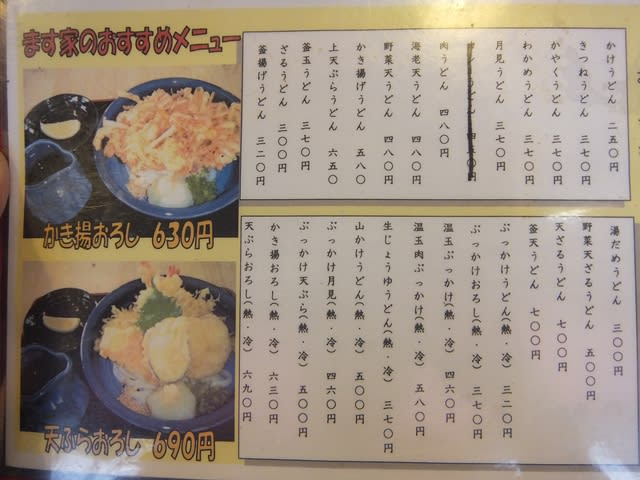 ます家のおすすめメニュー
かき揚おろし 630円
天ぷらおろし 690円
かけうどん 二五〇円
きつねうどん 三七〇円
かやくうどん 三七〇円
わかめうどん 三七〇円
月見うどん 三七〇円
肉うどん 四八〇円
海老天うどん 四八〇円
野菜天うどん 四八〇円
かき揚げうどん 五八〇
上天ぷらうどん 六五〇
釜玉うどん 三七〇円
ざるうどん 三〇〇円
釜揚げうどん 三二〇円
湯だめうどん 三〇〇円
野菜天ざるうどん 五〇〇円
天ざるうどん 七〇〇円
釜天うどん 七〇〇円
ぶっかけうどん(熱・冷) 三二〇円
ぶっかけおろし(熱・冷) 三七〇円
温玉ぶっかけ(熱・冷) 四六〇円
温玉肉ぶっかけ(熱・冷) 五八〇円
生じょうゆうどん(熱・冷) 三七〇円
山かけうどん(熱・冷) 五〇〇円
ぶっかけ月見(熱・冷) 四六〇円
ぶっかけ天ぷら(熱・冷) 五〇〇円
かき揚おろし(熱・冷) 六三〇円
天ぷらおろし(熱・冷) 六九〇円